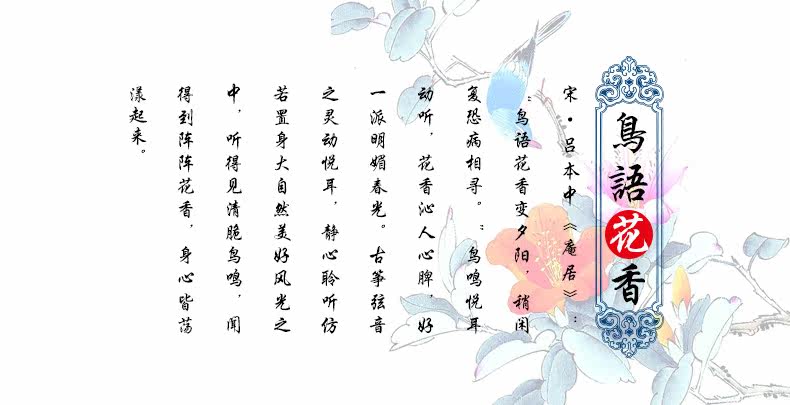 鳥語花香
宋·吕本中《庵居》:
“鸟语花香变夕阳，稍闲
复恐病相寻。”鸟鸣悦耳
动听，花香沁人心脾，好
一派明媚春光。古筝弦音
之灵动悦耳，静心聆听仿
若置身大自然美好风光之
中，听得见清脆鸟鸣，闻
得到阵阵花香，身心皆荡
漾起来。